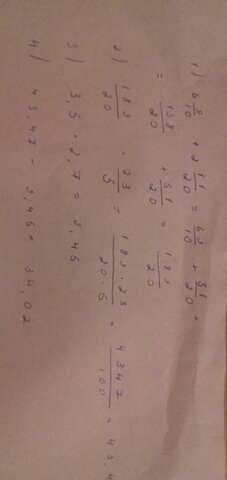 1) 6 9/10 + 2 11/20 = 69/10 + 51/20 =
= 138/20 + 51/20 = 189/20
2) 189/20 · 23/5 = 189·23/20·5 = 4347/100 = 43,4
3) 3,5 · 2,7 = 9,45
4) 43,47 - 9,45 = 34,02